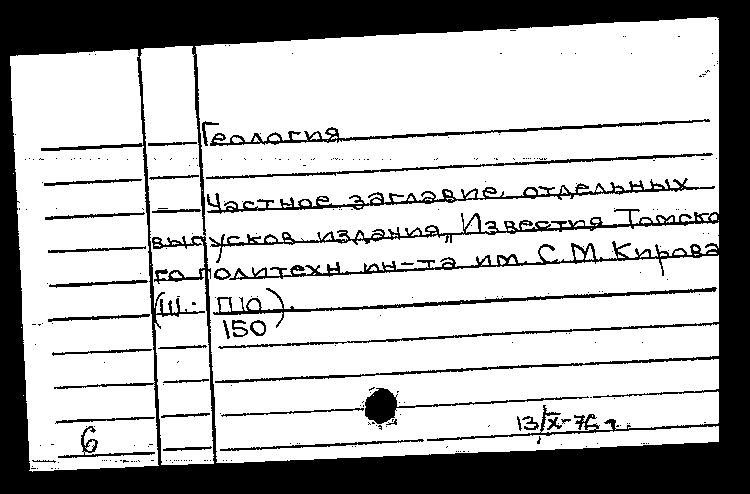 Геология
Частное заглавие отдельных
выпусков издания „Известия Томско
го политехн. ин-та им. С.М. Кирова
(Ш.: П10
150).
13/X-76 г.
6